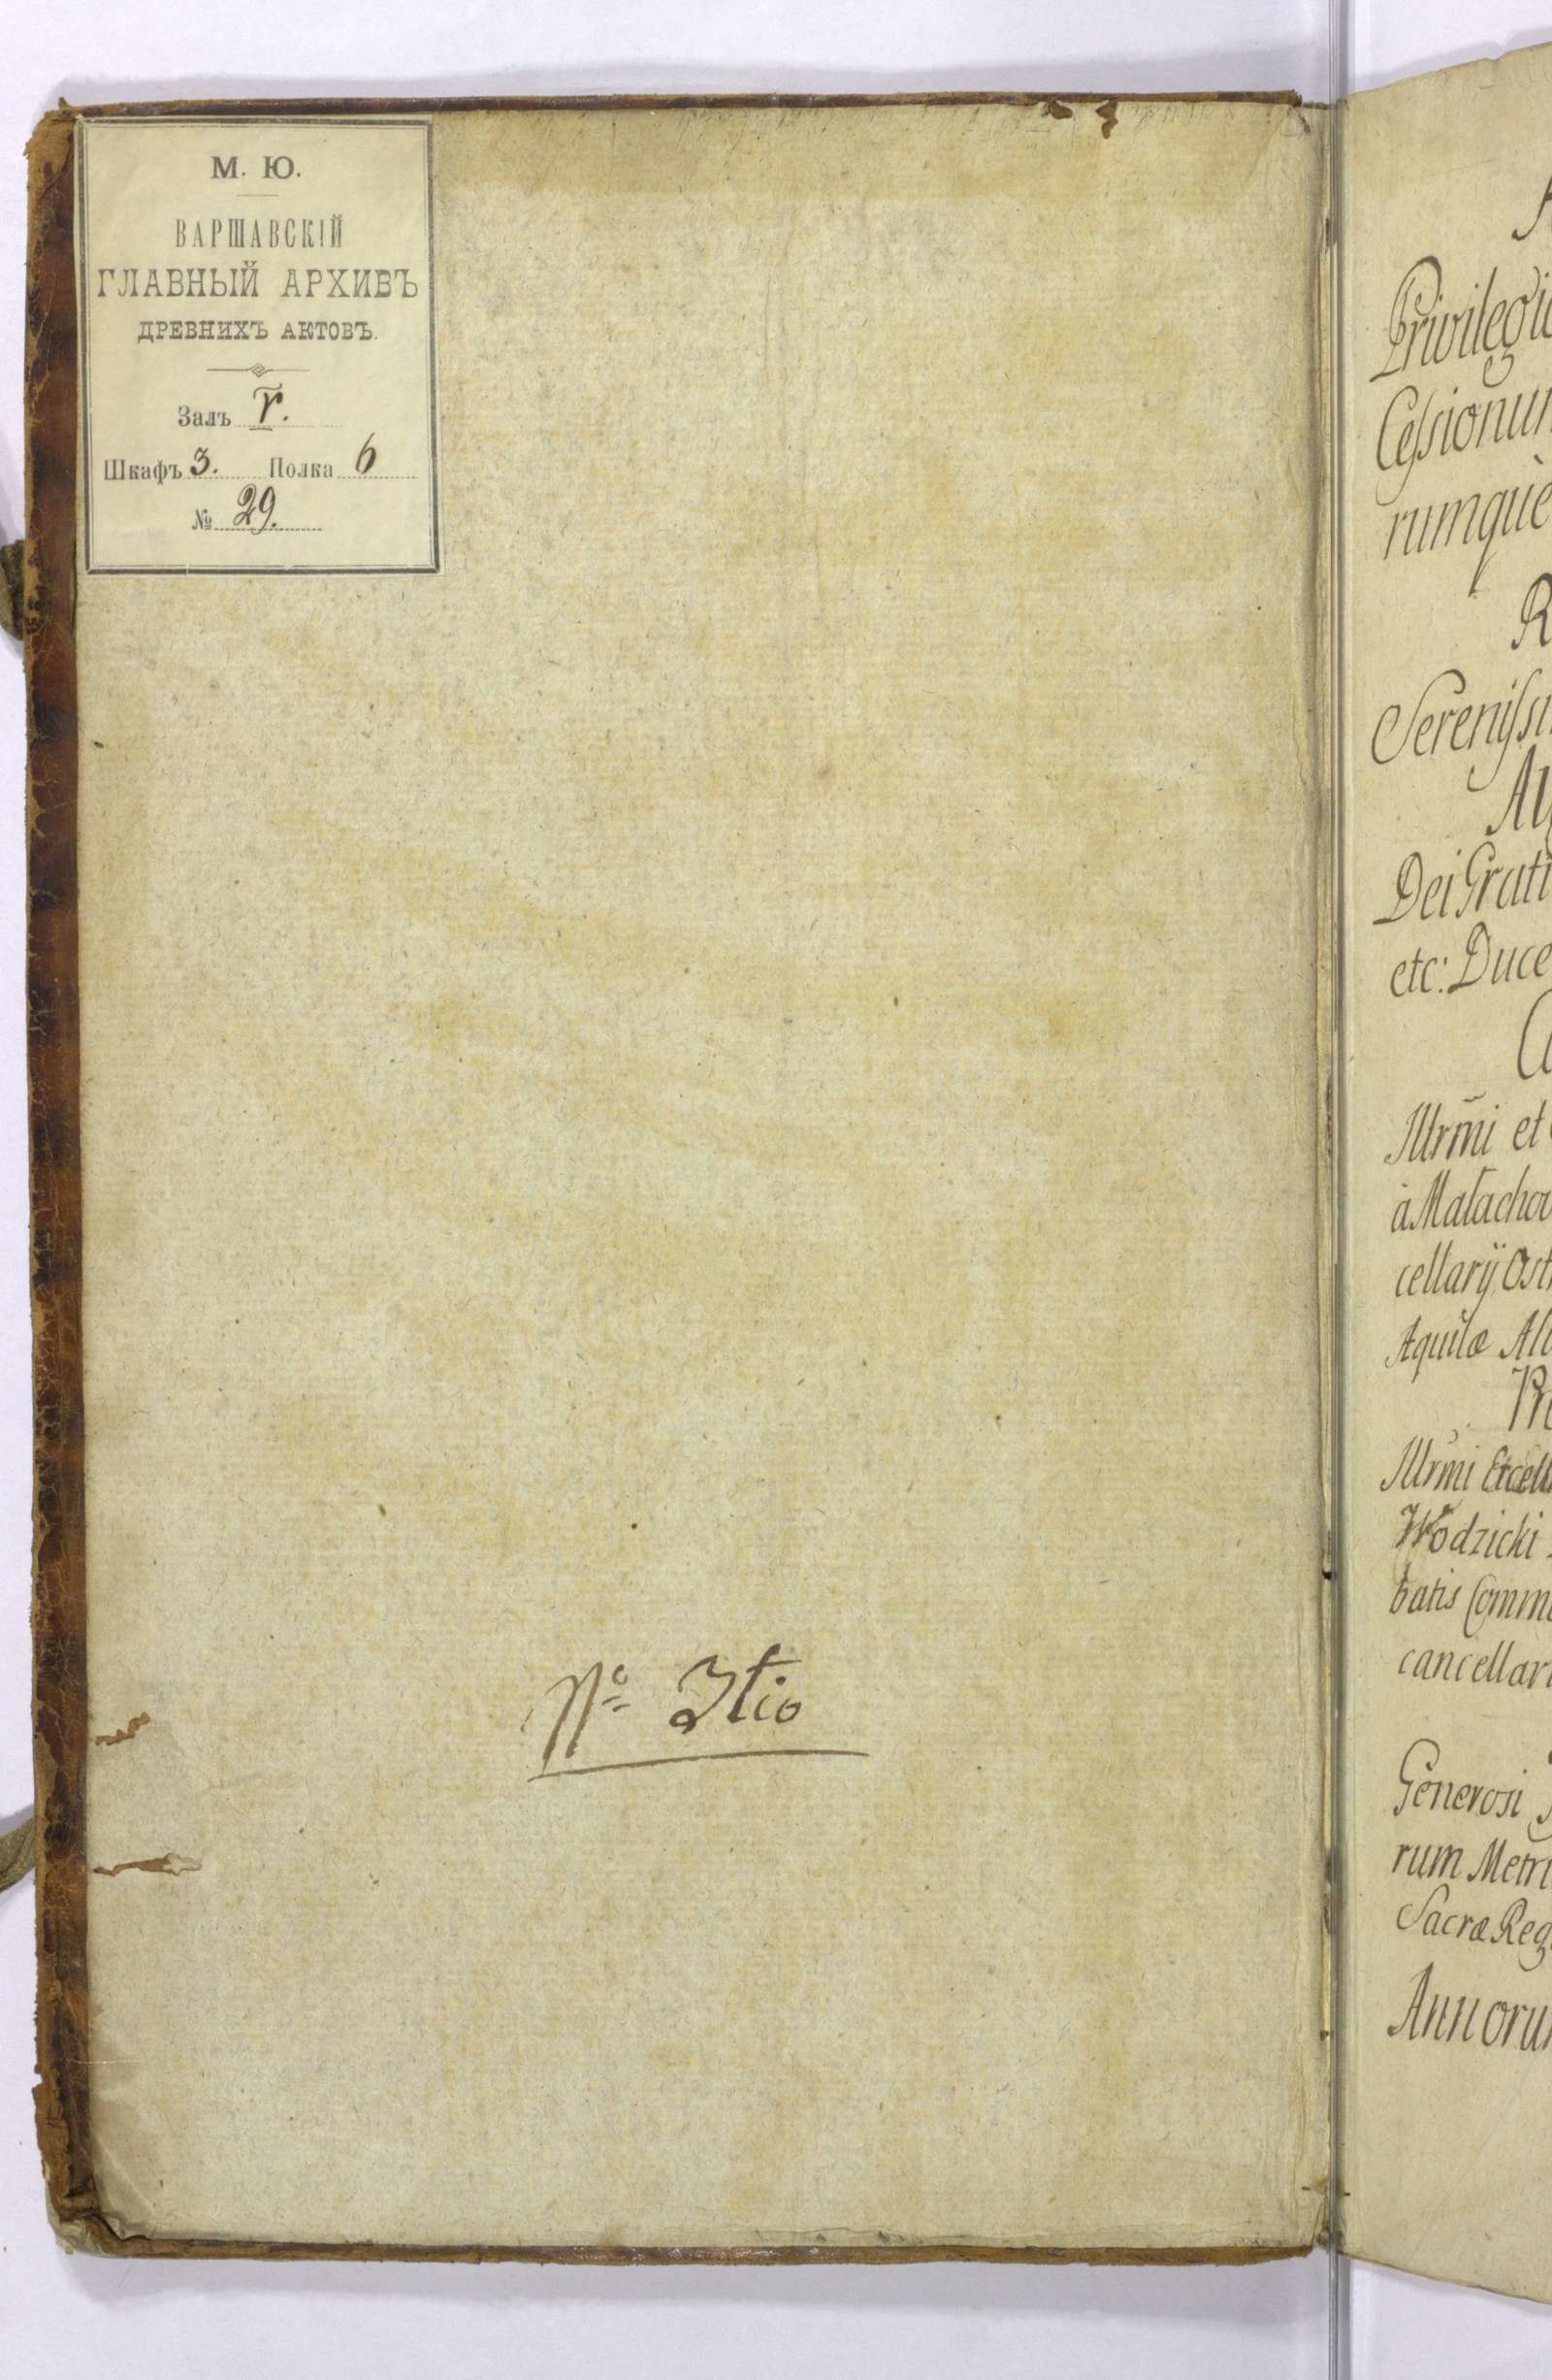 М. Ю.
ВАРШАВСКІЙ
ГЛАВНЫЙ АРХИВЪ
ДРЕВНИХЪ АКТОВЪ.
Залъ
Шкафъ 3. Полка 6
№ 29.
No 3tio
Privilegio
Cessionum
rumquè
R
Serenissi
Au
Dei Grati
etc: Duce
Illrmi et
à Małachow
cellarÿ Ost
Aquilæ Al
Pr
Illrmi Excell
Wodzicki
batis Comm
cancellari
Generosi
rum Metri
Sacræ Reg
Annorum